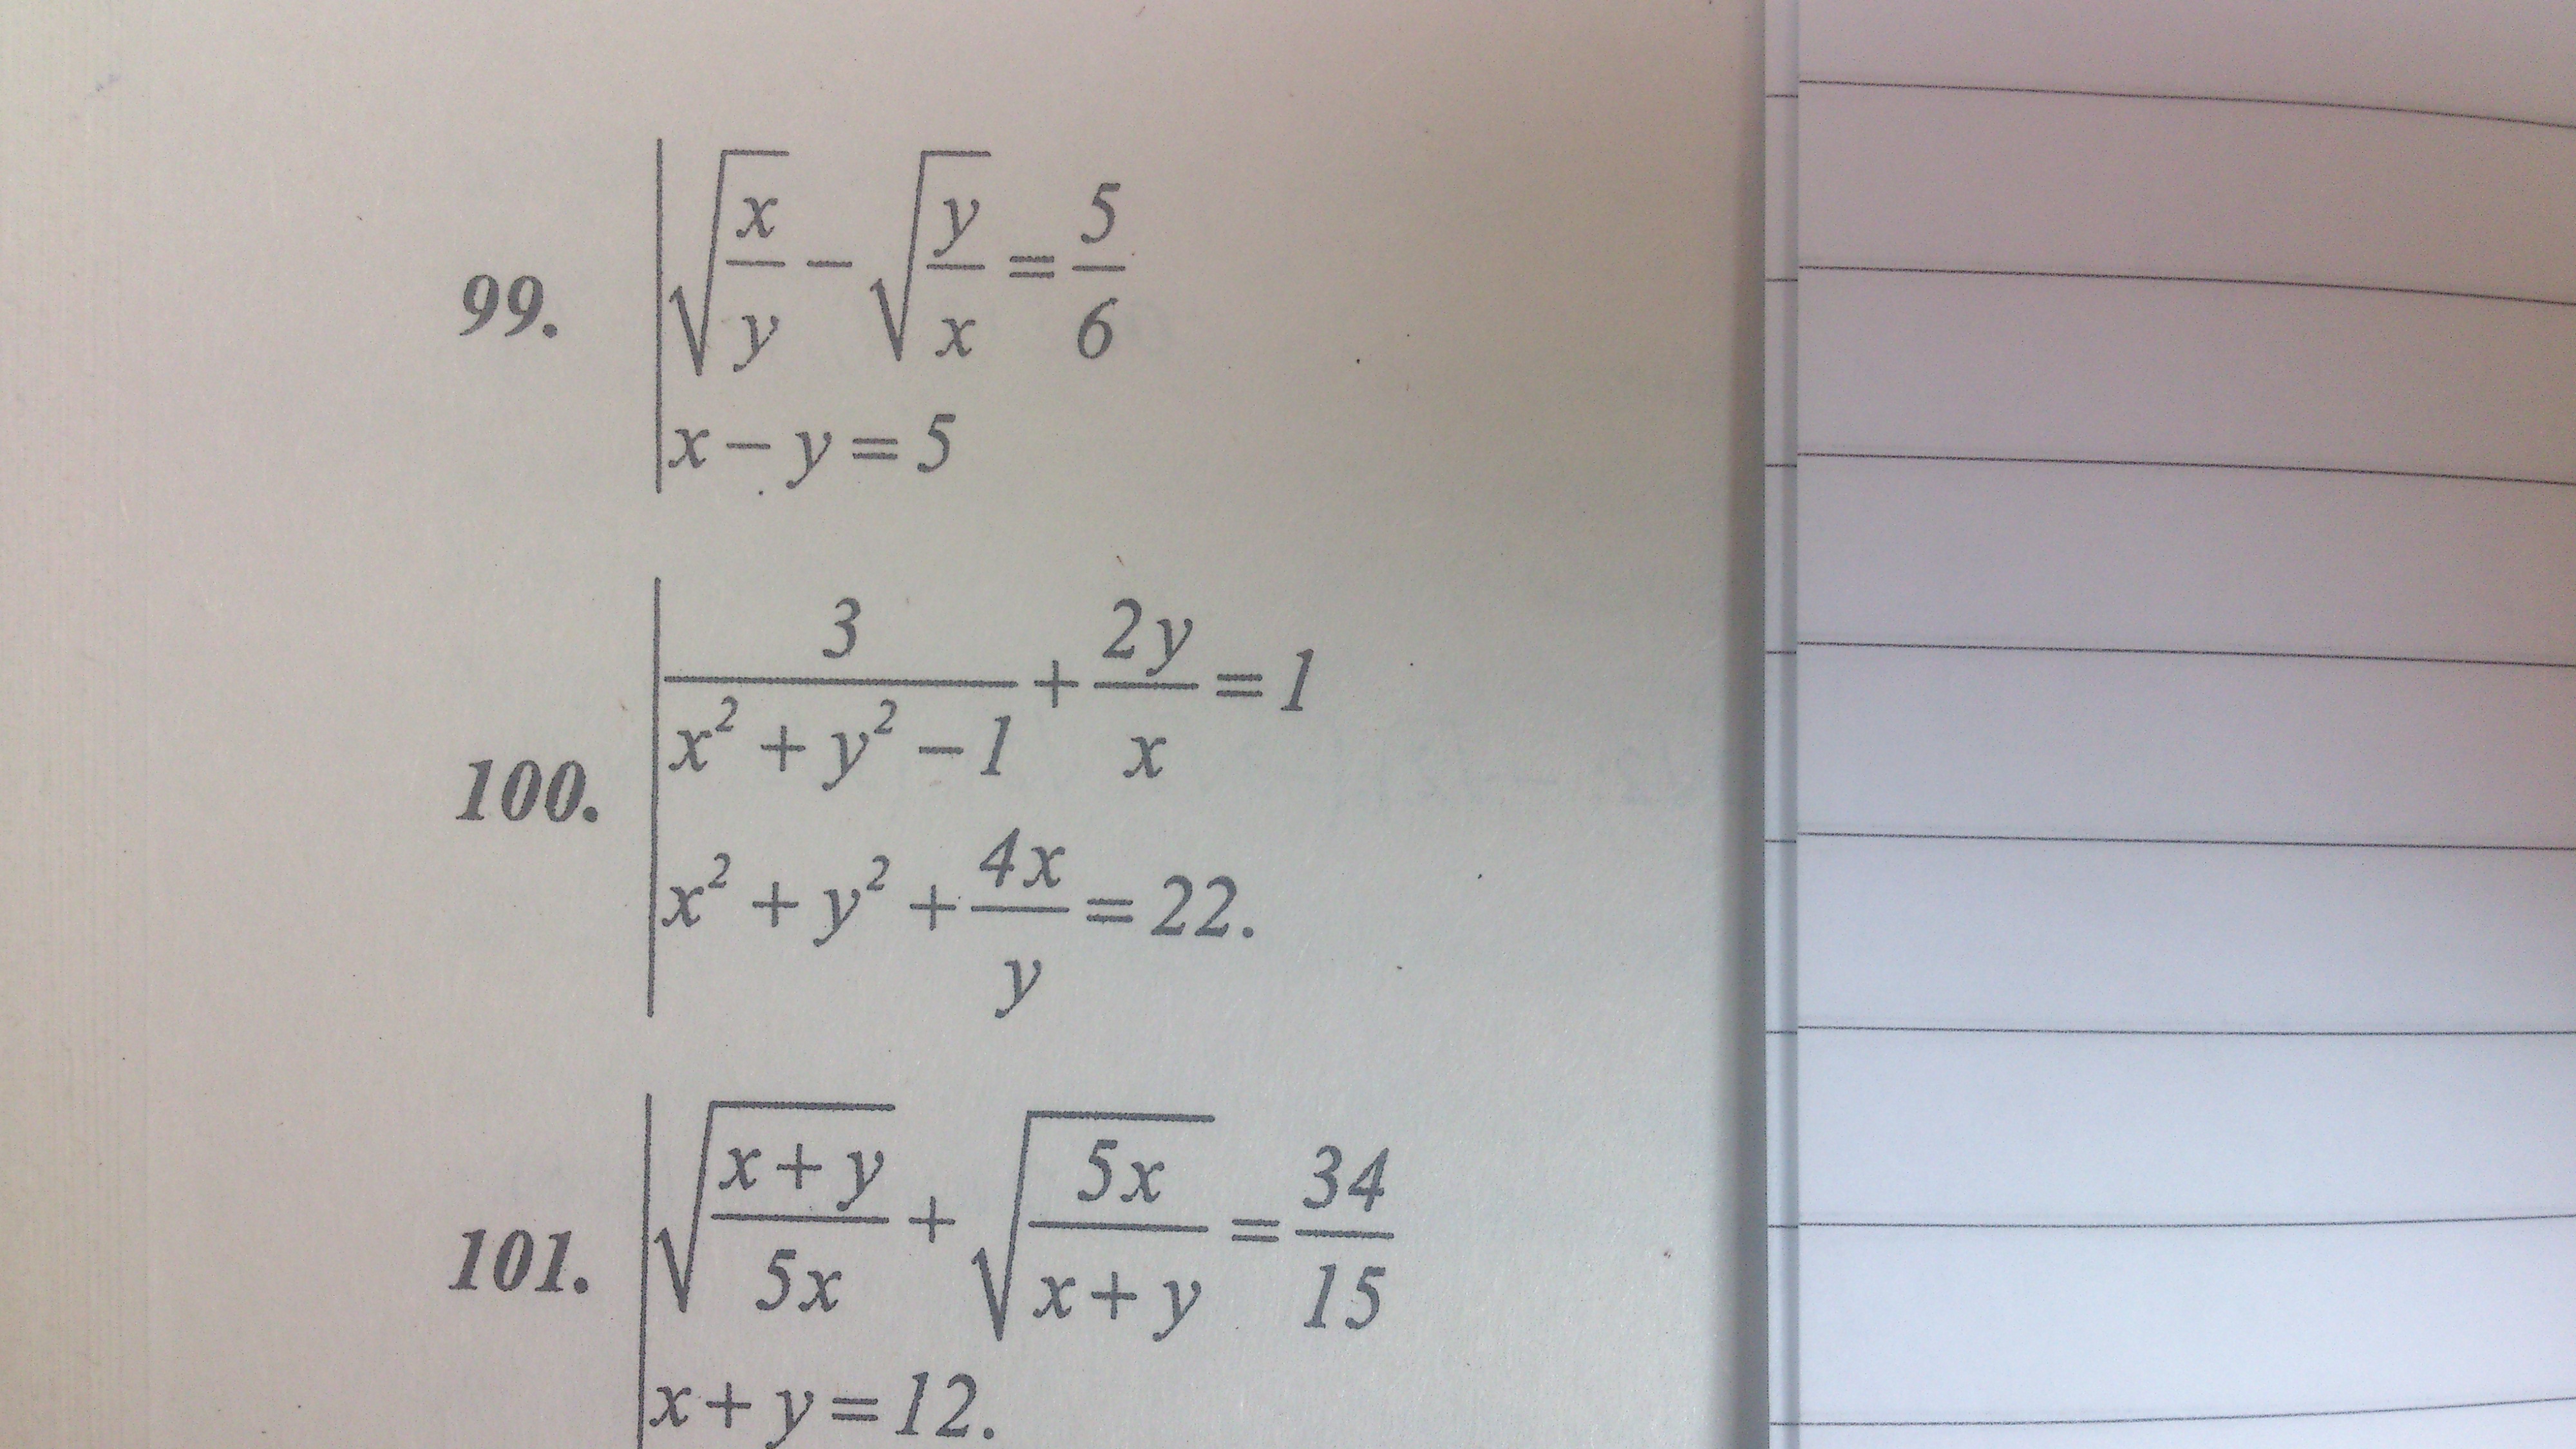 99. √(x/y) − √(y/x) = 5/6
x − y = 5
100. 3/(x² + y² − 1) + 2y/x = 1
x² + y² + 4x/y = 22.
101. √((x + y)/(5x)) + √((5x)/(x + y)) = 34/15
x + y = 12.